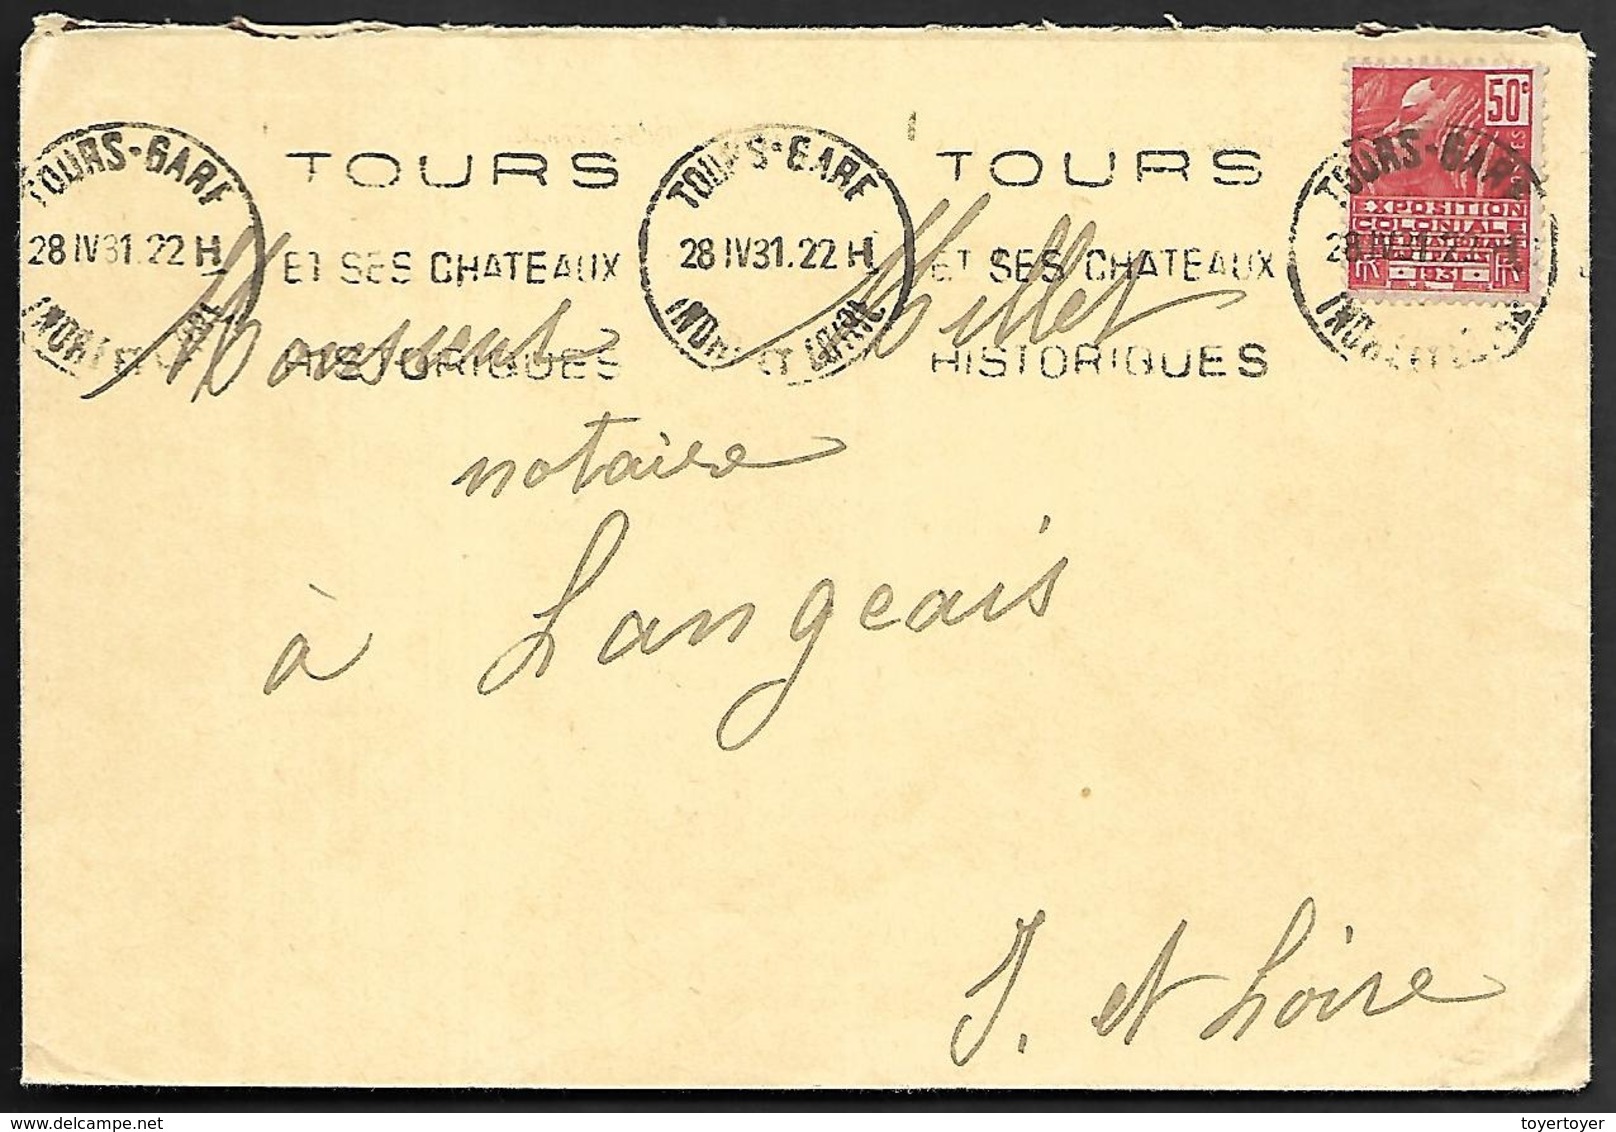 TOURS-GARE
28 IV 31.22 H
INDRE ET LOIRE
TOURS
ET SES CHATEAUX
HISTORIQUES
TOURS-GARE
28 IV 31.22 H
INDRE ET LOIRE
TOURS
ET SES CHATEAUX
HISTORIQUES
TOURS-GARE
28 IV 31.22 H
INDRE ET LOIRE
50c
POSTES
EXPOSITION
COLONIALE
INTERNATIONALE
PARIS
1931
Monsieur Millet
notaire
à Langeais
I. et Loire
delcampe.net
toyertoyer